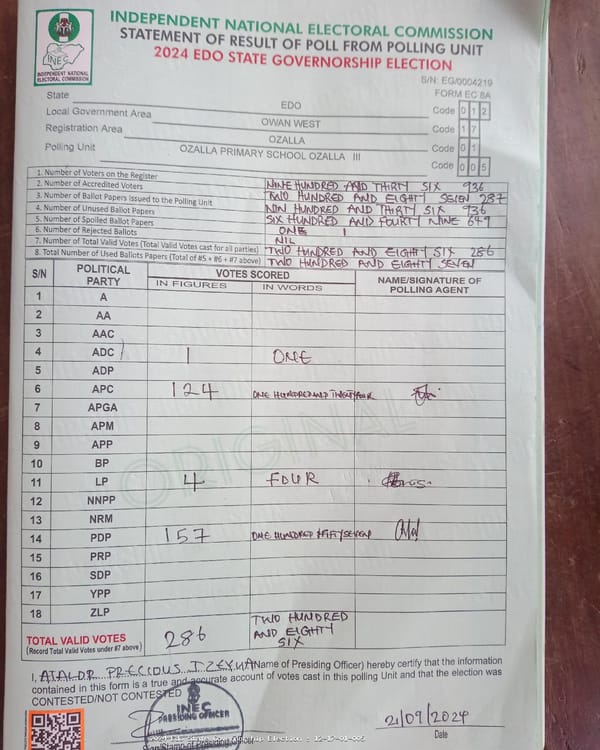 INDEPENDENT NATIONAL ELECTORAL COMMISSION
STATEMENT OF RESULT OF POLL FROM POLLING UNIT
2024 EDO STATE GOVERNORSHIP ELECTION
INEC
INDEPENDENT NATIONAL ELECTORAL COMMISSION
S/N: EG/0004219
FORM EC 8A
State EDO Code 0 1 2
Local Government Area OWAN WEST Code 1 7
Registration Area OZALLA Code 0 1
Polling Unit OZALLA PRIMARY SCHOOL OZALLA III Code 0 0 5
1. Number of Voters on the Register NINE HUNDRED AND THIRTY SIX 936
2. Number of Accredited Voters TWO HUNDRED AND EIGHTY SEVEN 287
3. Number of Ballot Papers issued to the Polling Unit NIN HUNDRED AND THIRTY SIX 936
4. Number of Unused Ballot Papers SIX HUNDRED AND FOURTY NINE 649
5. Number of Spoiled Ballot Papers ONE 1
6. Number of Rejected Ballots NIL
7. Number of Total Valid Votes (Total Valid Votes cast for all parties) TWO HUNDRED AND EIGHTY SIX 286
8. Total Number of Used Ballots Papers (Total of #5 + #6 + #7 above) TWO HUNDRED AND EIGHTY SEVEN
S/N POLITICAL PARTY VOTES SCORED NAME/SIGNATURE OF POLLING AGENT
IN FIGURES IN WORDS
1 A
2 AA
3 AAC
4 ADC 1 ONE
5 ADP
6 APC 124 ONE HUNDRED AND TWENTY FOUR
7 APGA
8 APM
9 APP
10 BP
11 LP 4 FOUR
12 NNPP
13 NRM
14 PDP 157 ONE HUNDRED FIFTY SEVEN
15 PRP
16 SDP
17 YPP
18 ZLP
ORIGINAL
TOTAL VALID VOTES 286 TWO HUNDRED AND EIGHTY SIX
(Record Total Valid Votes under #7 above)
I, PRECIOUS (Name of Presiding Officer) hereby certify that the information
contained in this form is a true and accurate account of votes cast in this polling Unit and that the election was
CONTESTED/NOT CONTESTED
INEC
PRESIDING OFFICER
21/09/2024
Date